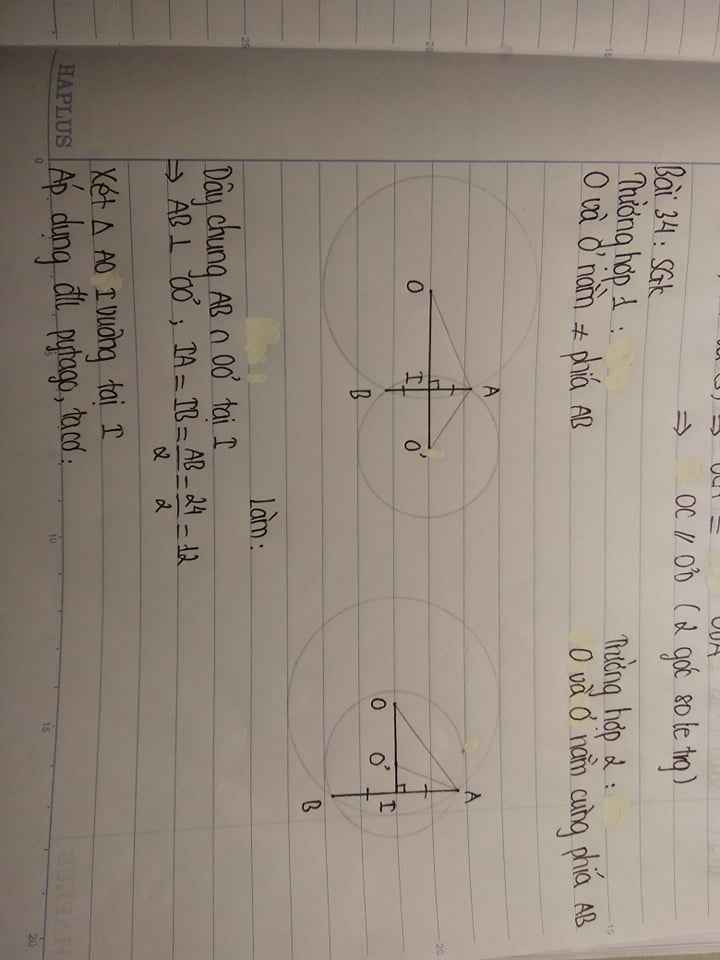 ODA
⇒ OC // O'D (2 góc so le trg)
Bài 34: SGK
Trường hợp 1:
O và O' nằm ≠ phía AB
Trường hợp 2:
O và O' nằm cùng phía AB
A
O
I
O'
B
A
O
O'
I
B
Làm:
Dây chung AB ∩ OO' tại I
⇒ AB ⊥ OO'; IA = IB = AB/2 = 24/2 = 12
Xét Δ AOI vuông tại I
Áp dụng đll pytago, ta có:
HAPLUS
0
5
10
15
20